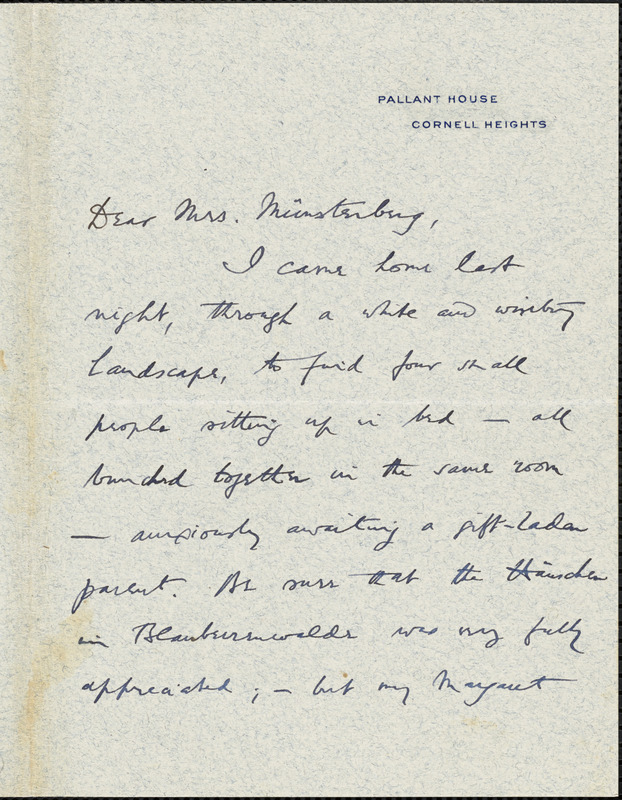 PALLANT HOUSE
CORNELL HEIGHTS
Dear Mrs. Münsterberg,
I came home last
night, through a white and wintry
landscape, to find four small
people sitting up in bed — all
bunched together in the same room
— anxiously awaiting a gift-laden
parent. Be sure that the Häuschen
in Blaubeerenwalde was very fully
appreciated ; — but my Margaret